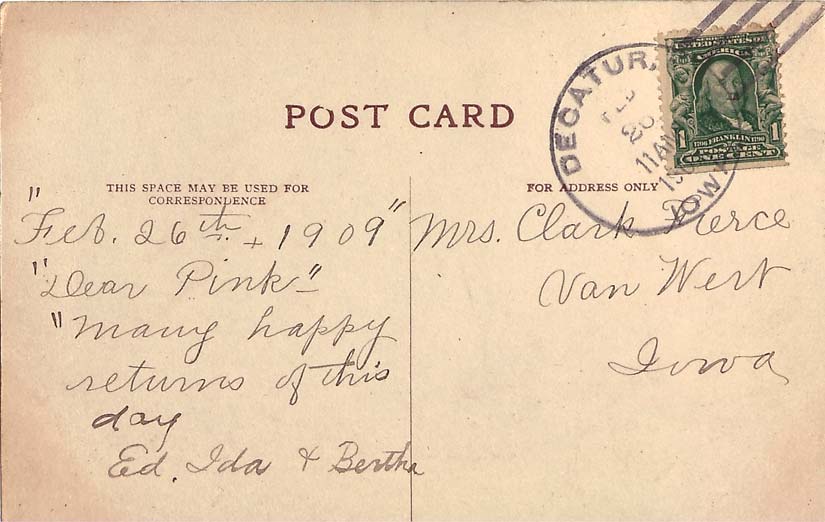 POST CARD
THIS SPACE MAY BE USED FOR
CORRESPONDENCE
FOR ADDRESS ONLY
DECATUR,
IOWA
11 AM
UNITED STATES OF
AMERICA
1 1
1706 FRANKLIN 1790
POSTAGE
ONE CENT
"Feb. 26th. + 1909"
"Dear Pink"
"Many happy
returns of this
day
Ed. Ida & Bertha
Mrs. Clark Pierce
Van Wert
Iowa